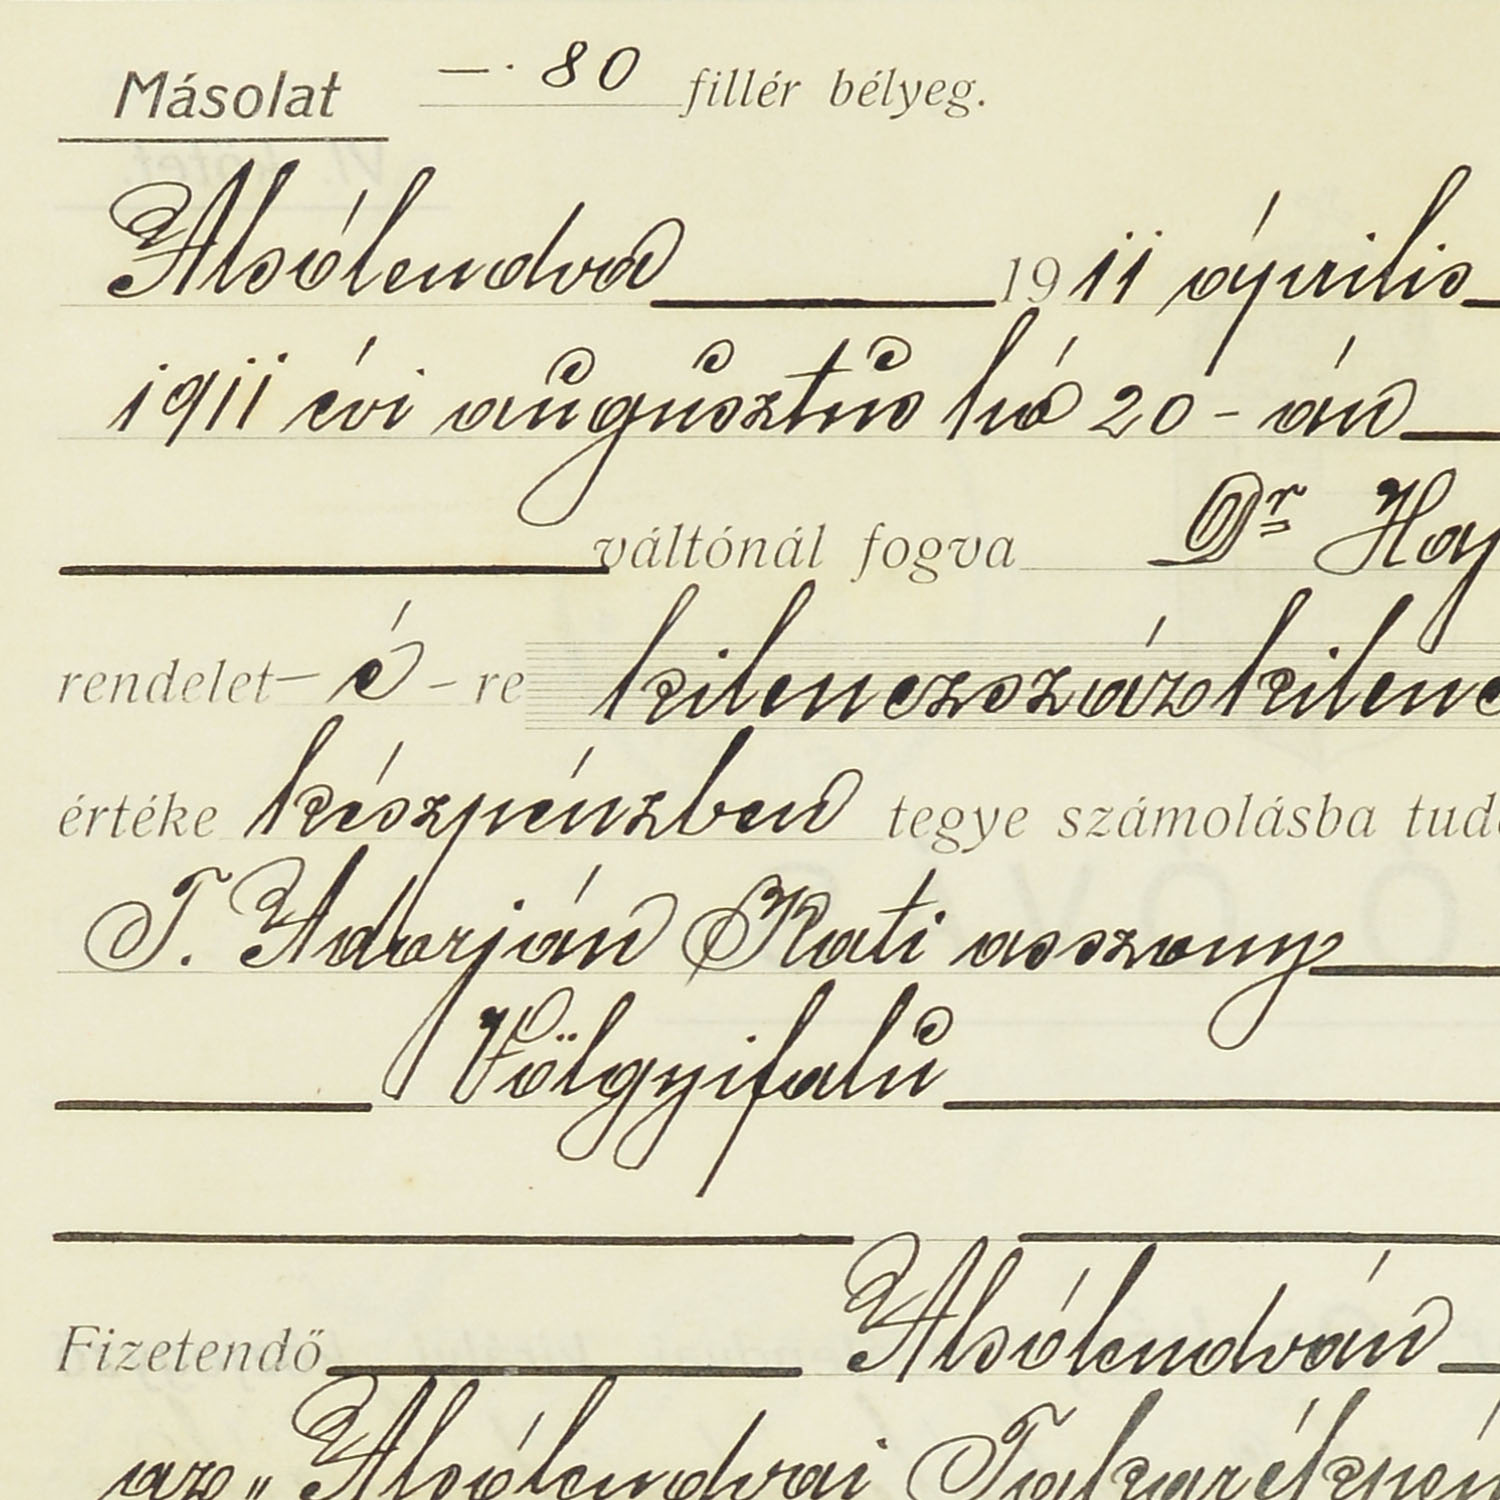 Másolat —· 80 fillér bélyeg.
Alsólendva 1911 április
1911 évi augusztus hó 20 - án
váltónál fogva Dr Hay
rendelet - é - re kilenczszázkilenc
értéke készpénzben tegye számolásba tud
T. Adorján Kati asszony
Völgyifalu
Fizetendő Alsólendván
az „Alsólendvai Takarékpén